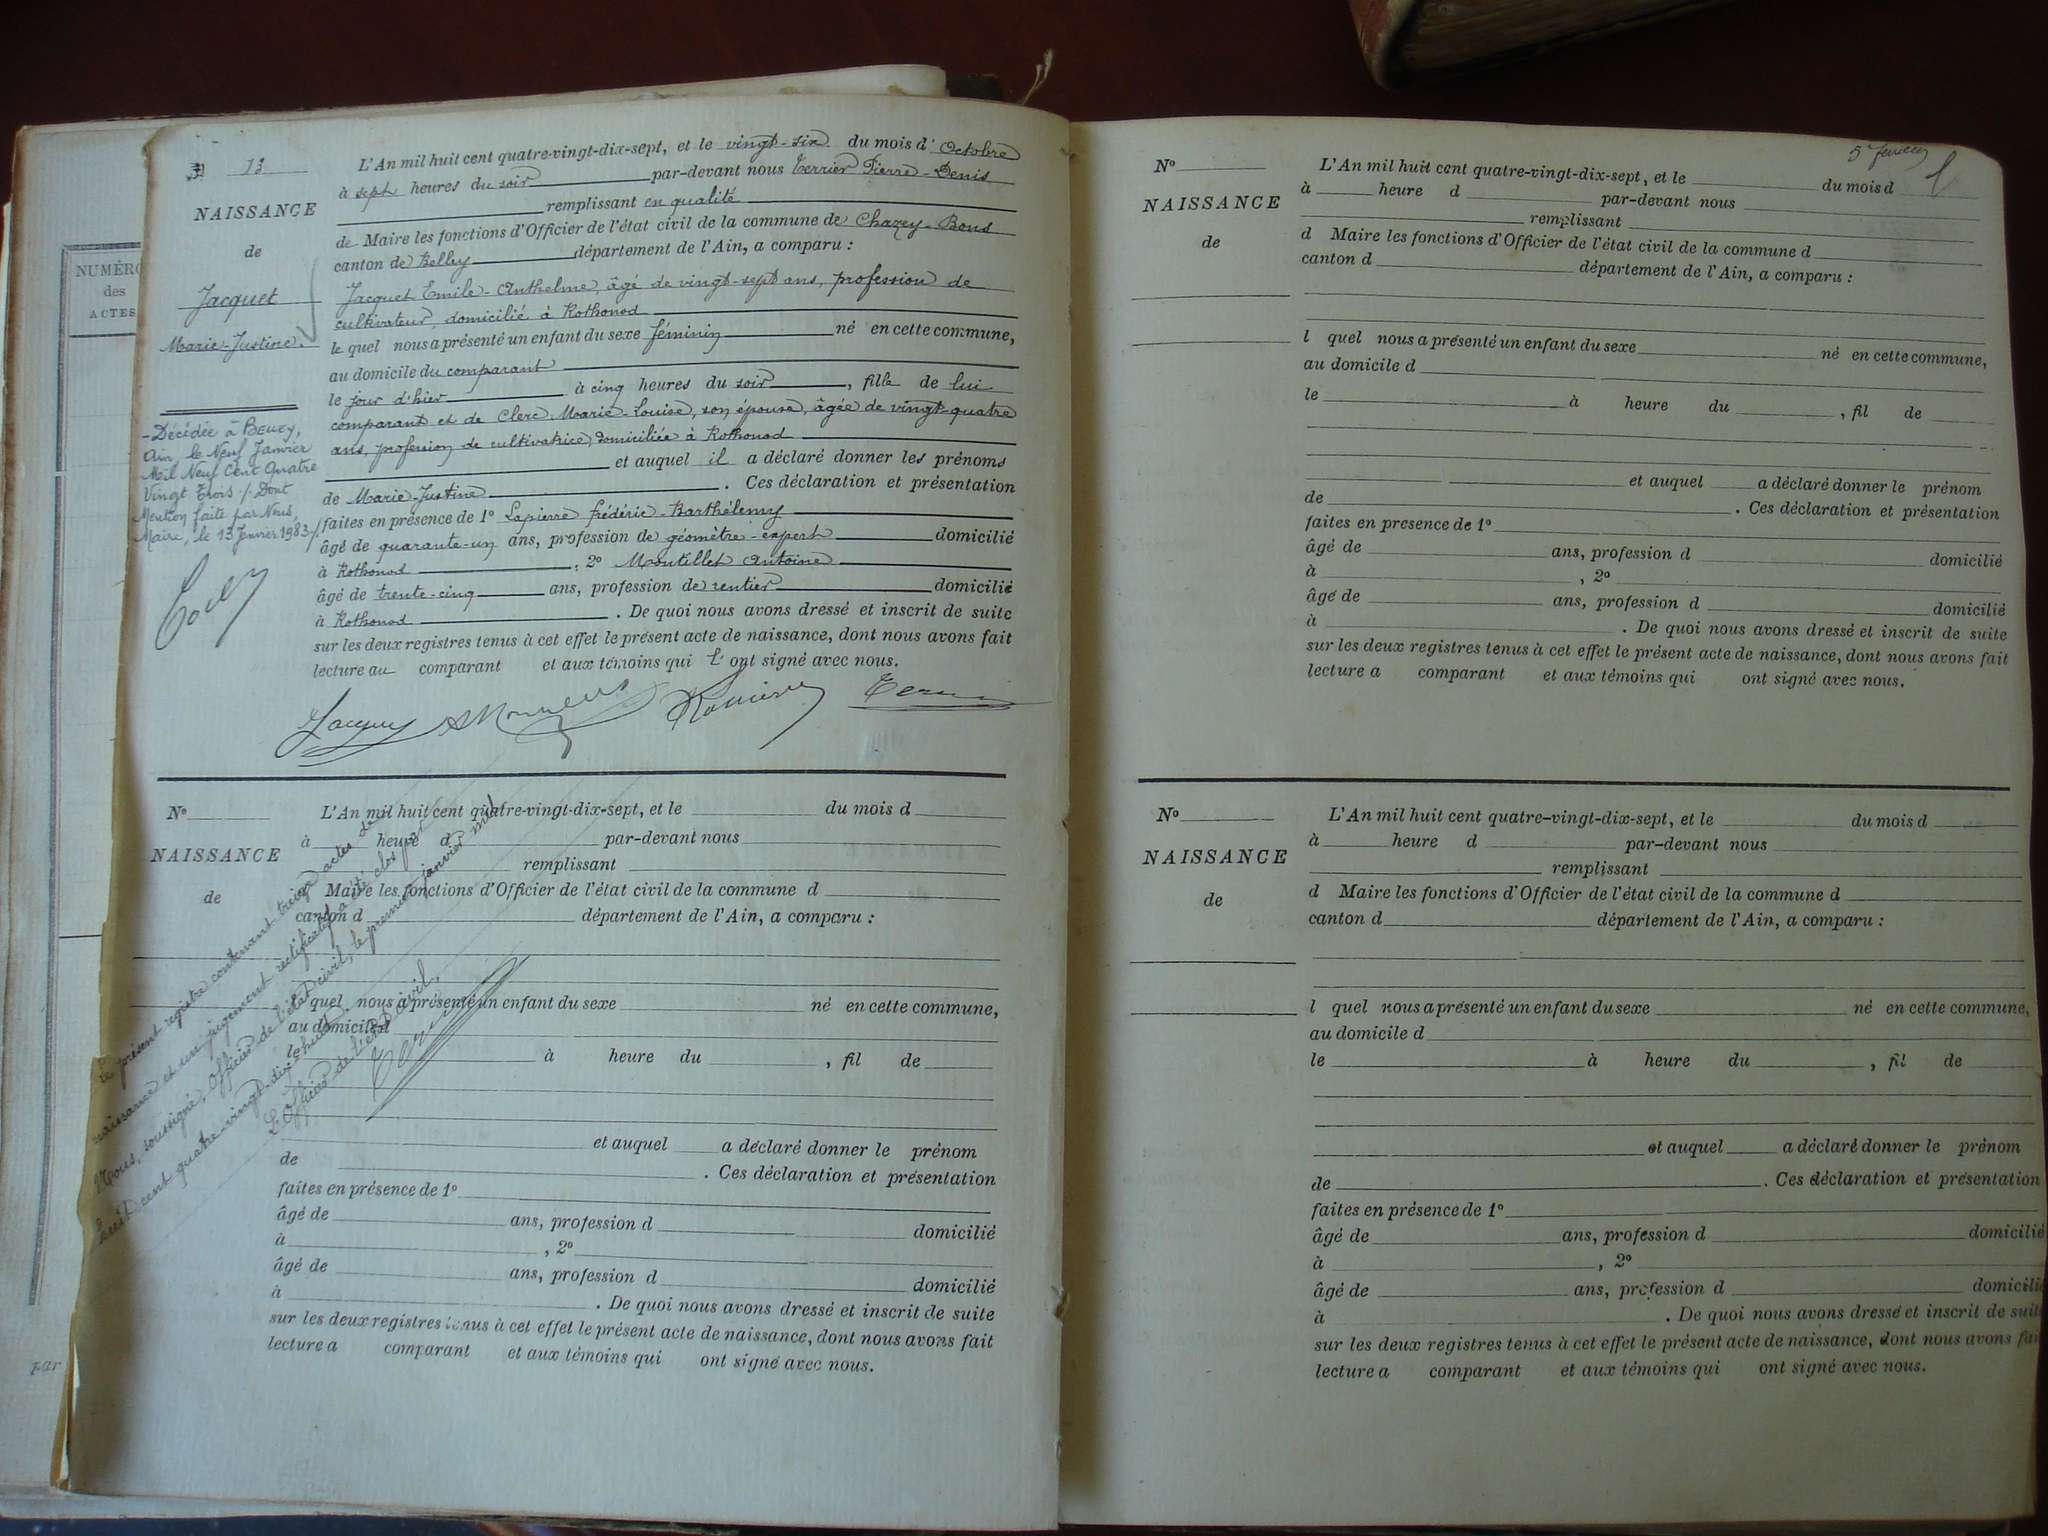 NUMÉRO
des
ACTES
par
N° 13
NAISSANCE
de
Jacquet
Marie-Justine.
- Décédée à BELLEY,
Ain, le Neuf Janvier
Mil Neuf Cent Quatre
Vingt Trois ./. Dont
Mention faite par Nous,
Maire, le 13 Janvier 1983 ./.
L'An mil huit cent quatre-vingt-dix-sept, et le vingt-six du mois d'Octobre
à sept heures du soir par-devant nous Terrier Pierre-Denis
remplissant en qualité
de Maire les fonctions d'Officier de l'état civil de la commune de Chazey-Bons
canton de Belley département de l'Ain, a comparu :
Jacquet Emile-Anthelme, âgé de vingt-sept ans, profession de
cultivateur, domicilié à Rothonod
le quel nous a présenté un enfant du sexe féminin né en cette commune,
au domicile du comparant
le jour d'hier à cinq heures du soir, fille de lui
comparant et de Clerc Marie-Louise, son épouse, âgée de vingt-quatre
ans, profession de cultivatrice, domiciliée à Rothonod
et auquel il a déclaré donner les prénoms
de Marie-Justine. Ces déclaration et présentation
faites en présence de 1° Lapierre frédéric-Barthélemy
âgé de quarante-un ans, profession de géomètre-expert domicilié
à Rothonod, 2° Montillet Antoine
âgé de trente-cinq ans, profession de rentier domicilié
à Rothonod. De quoi nous avons dressé et inscrit de suite
sur les deux registres tenus à cet effet le présent acte de naissance, dont nous avons fait
lecture au comparant et aux témoins qui l'ont signé avec nous.
Jacquet
N°
NAISSANCE
de
L'An mil huit cent quatre-vingt-dix-sept, et le du mois d
à heure d par-devant nous
remplissant
d Maire les fonctions d'Officier de l'état civil de la commune d
canton d département de l'Ain, a comparu :
l quel nous a présenté un enfant du sexe né en cette commune,
au domicile d
le à heure du , fil de
et auquel a déclaré donner le prénom
de . Ces déclaration et présentation
faites en présence de 1°
âgé de ans, profession d domicilié
à , 2°
âgé de ans, profession d domicilié
à . De quoi nous avons dressé et inscrit de suite
sur les deux registres tenus à cet effet le présent acte de naissance, dont nous avons fait
lecture a comparant et aux témoins qui ont signé avec nous.
Le présent registre contenant treize actes de
naissance et un jugement rectificatif a été clos par
Nous, soussigné, Officier de l'état civil, le premier janvier mil
huit cent quatre vingt-dix-huit.
L'Officier de l'état civil,
N°
NAISSANCE
de
L'An mil huit cent quatre-vingt-dix-sept, et le du mois d
à heure d par-devant nous
remplissant
d Maire les fonctions d'Officier de l'état civil de la commune d
canton d département de l'Ain, a comparu :
l quel nous a présenté un enfant du sexe né en cette commune,
au domicile d
le à heure du , fil de
et auquel a déclaré donner le prénom
de . Ces déclaration et présentation
faites en presence de 1°
âgé de ans, profession d domicilié
à , 2°
âgé de ans, profession d domicilié
à . De quoi nous avons dressé et inscrit de suite
sur les deux registres tenus à cet effet le présent acte de naissance, dont nous avons fait
lecture a comparant et aux témoins qui ont signé avec nous.
N°
NAISSANCE
de
L'An mil huit cent quatre-vingt-dix-sept, et le du mois d
à heure d par-devant nous
remplissant
d Maire les fonctions d'Officier de l'état civil de la commune d
canton d département de l'Ain, a comparu :
l quel nous a présenté un enfant du sexe né en cette commune,
au domicile d
le à heure du , fil de
et auquel a déclaré donner le prénom
de . Ces déclaration et présentation
faites en présence de 1°
âgé de ans, profession d domicilié
à , 2°
âgé de ans, profession d domicilié
à . De quoi nous avons dressé et inscrit de suite
sur les deux registres tenus à cet effet le présent acte de naissance, dont nous avons fai
lecture a comparant et aux témoins qui ont signé avec nous.